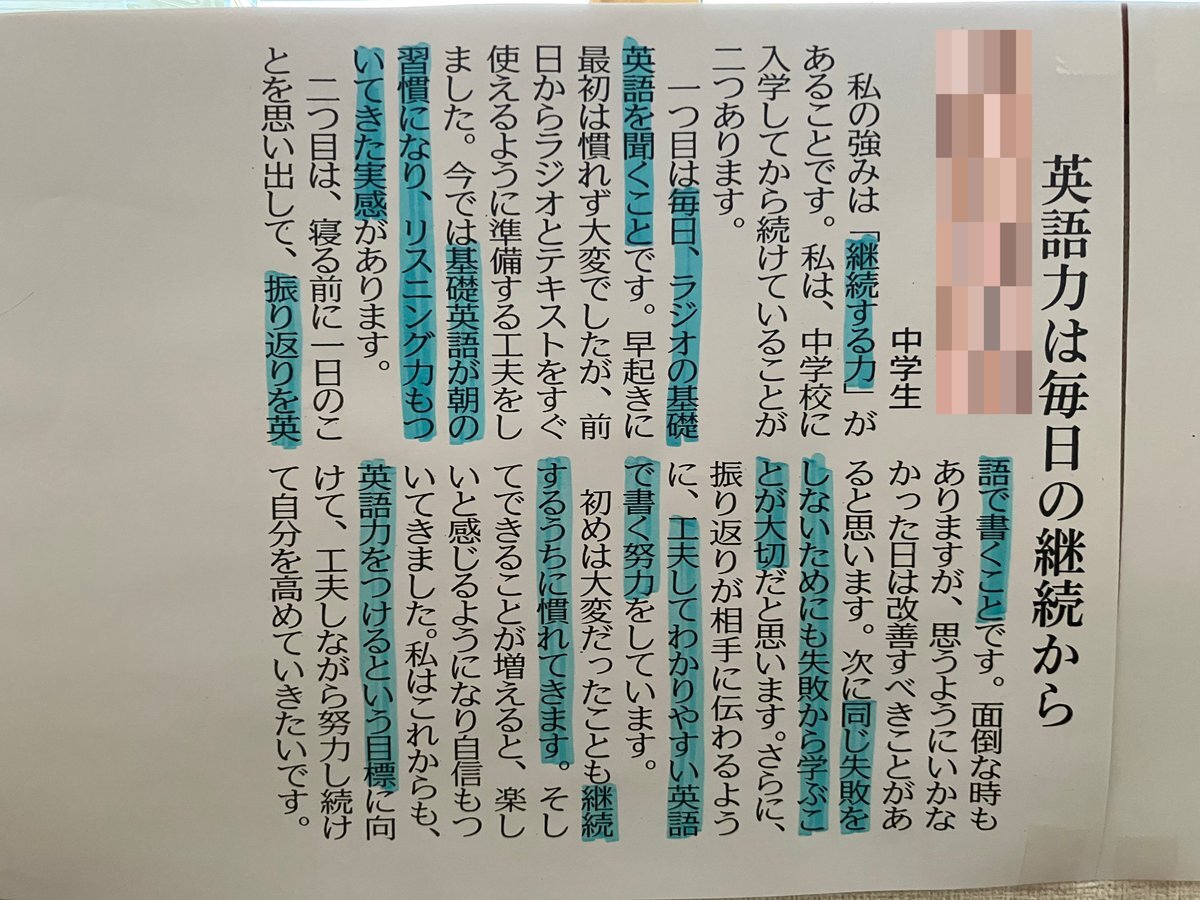 英語力は毎日の継続から
中学生
私の強みは「継続する力」が
あることです。私は、中学校に
入学してから続けていることが
二つあります。
一つ目は毎日、ラジオの基礎
英語を聞くことです。早起きに
最初は慣れず大変でしたが、前
日からラジオとテキストをすぐ
使えるように準備する工夫をし
ました。今では基礎英語が朝の
習慣になり、リスニング力もつ
いてきた実感があります。
二つ目は、寝る前に一日のこ
とを思い出して、振り返りを英
語で書くことです。面倒な時も
ありますが、思うようにいかな
かった日は改善すべきことがあ
ると思います。次に同じ失敗を
しないためにも失敗から学ぶこ
とが大切だと思います。さらに、
振り返りが相手に伝わるよう
に、工夫してわかりやすい英語
で書く努力をしています。
初めは大変だったことも継続
するうちに慣れてきます。そし
てできることが増えると、楽し
いと感じるようになり自信もつ
いてきました。私はこれからも、
英語力をつけるという目標に向
けて、工夫しながら努力し続け
て自分を高めていきたいです。